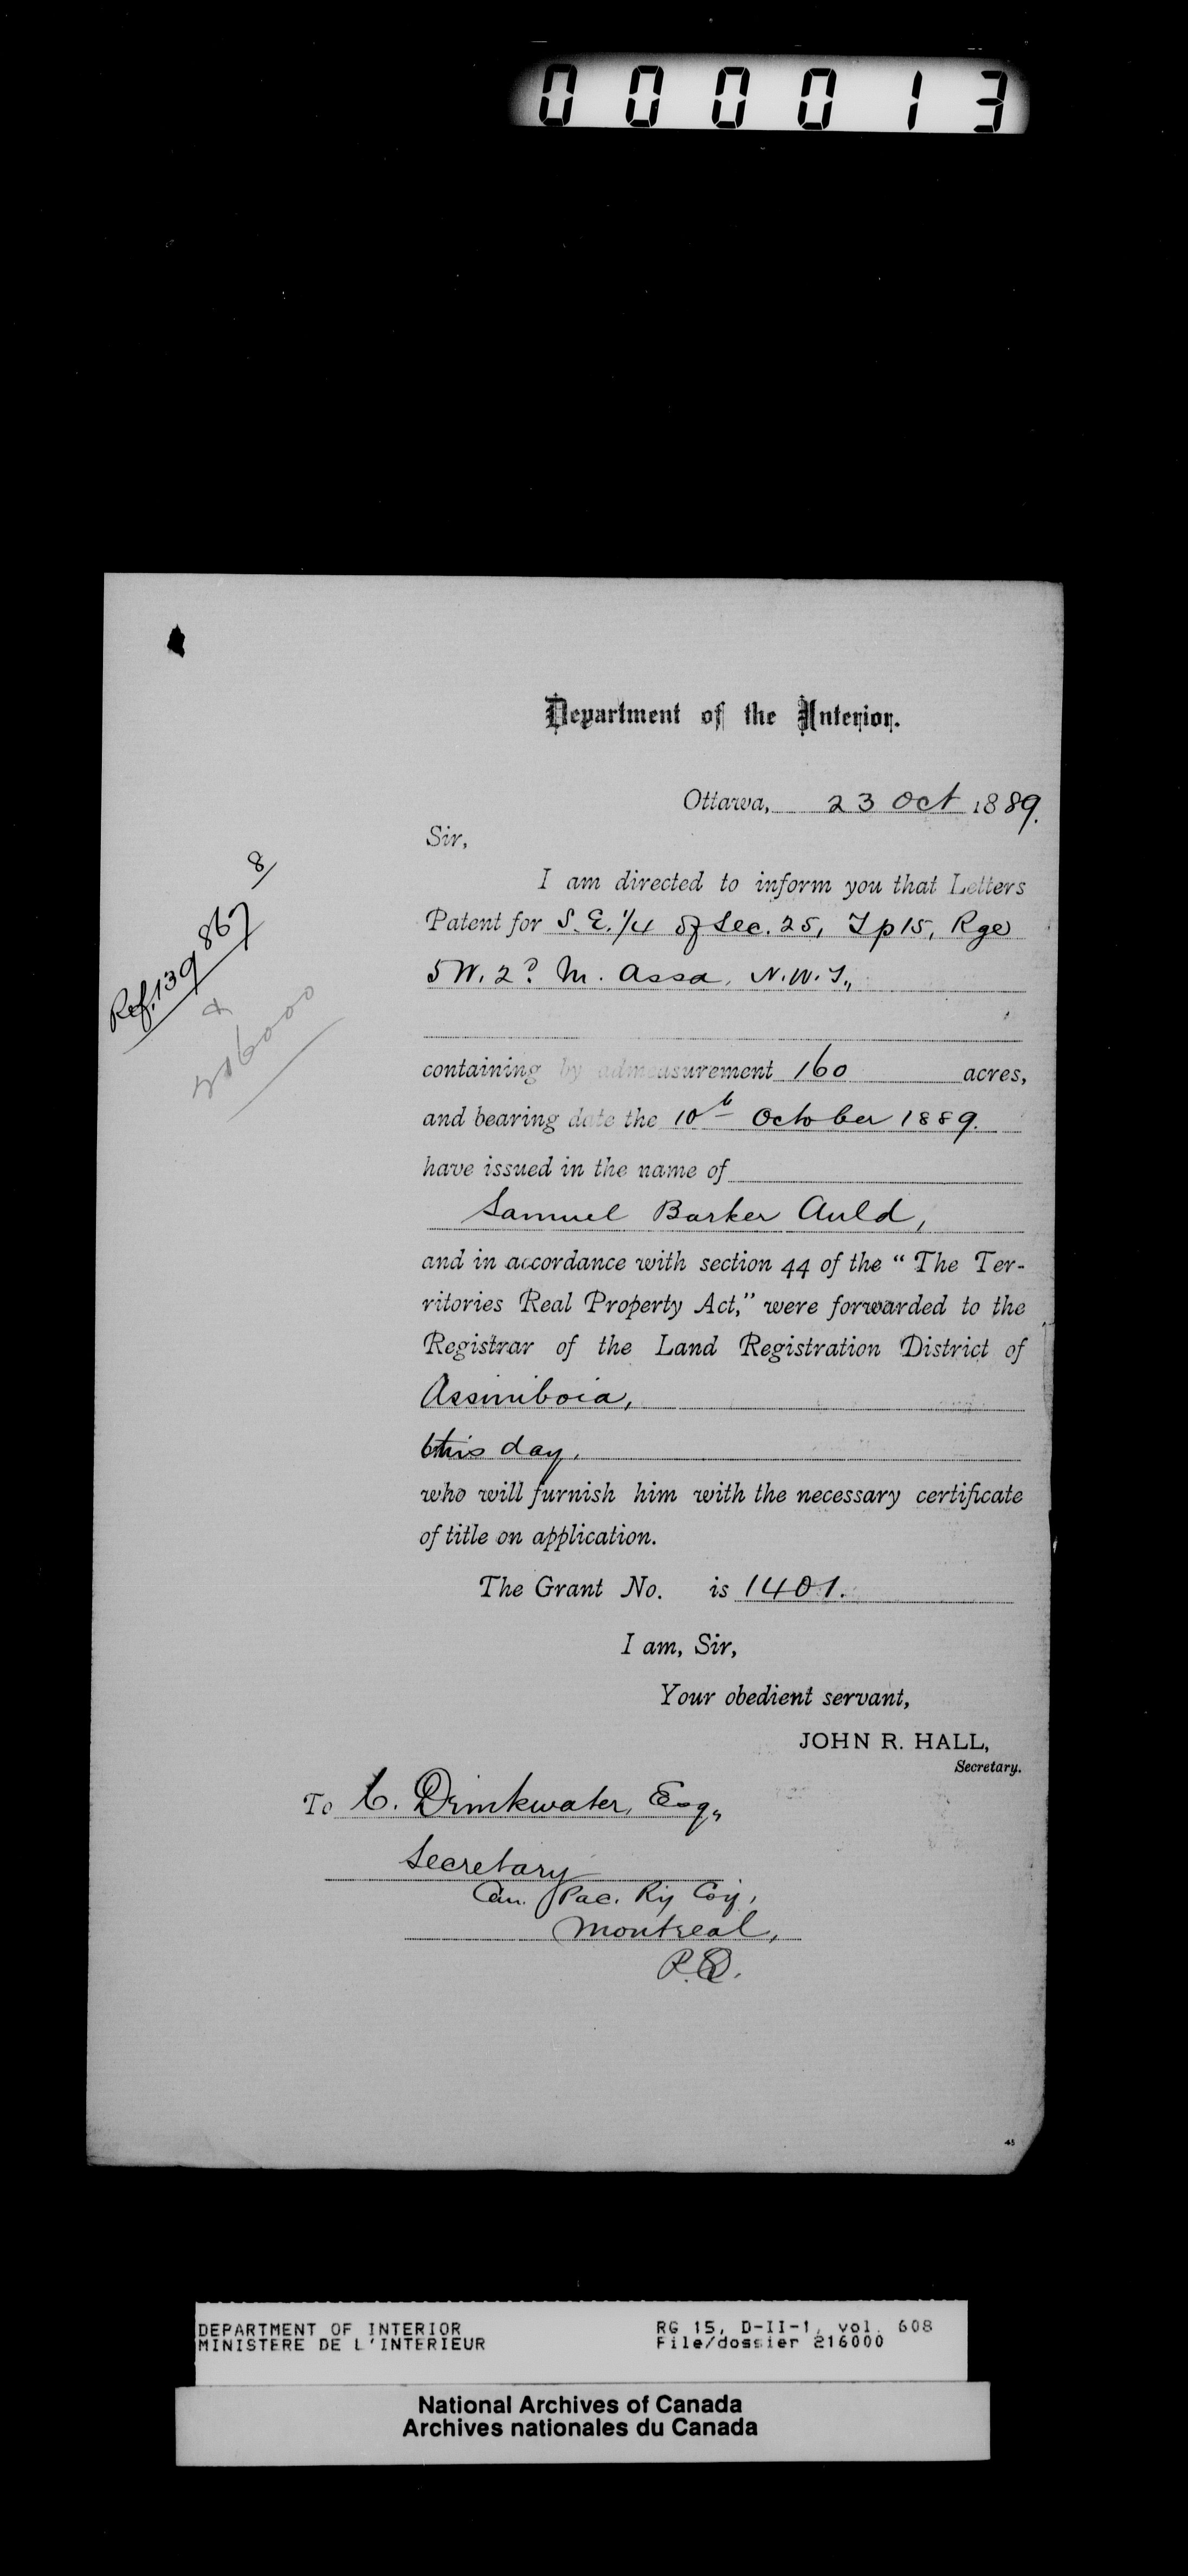 000013
Department of the Interior.
Ottawa, 23 Oct 1889.
Sir,
I am directed to inform you that Letters
Patent for S.E. 1/4 of Sec. 25, Tp 15, Rge
5 W. 2d M. Assa. N.W.T.,
containing by admeasurement 160 acres,
and bearing date the 10th October 1889.
have issued in the name of
Samuel Barker Auld,
and in accordance with section 44 of the “ The Ter-
ritories Real Property Act,” were forwarded to the
Registrar of the Land Registration District of
Assiniboia,
this day,
who will furnish him with the necessary certificate
of title on application.
The Grant No. is 1401.
I am, Sir,
Your obedient servant,
JOHN R. HALL,
Secretary.
To C. Drinkwater, Esq.,
Secretary
Can. Pac. Ry Coy,
Montreal,
P.Q.
Ref. 139867
8
&
216000
45
DEPARTMENT OF INTERIOR
MINISTERE DE L'INTERIEUR
RG 15, D-II-1, vol. 608
File/dossier 216000
National Archives of Canada
Archives nationales du Canada